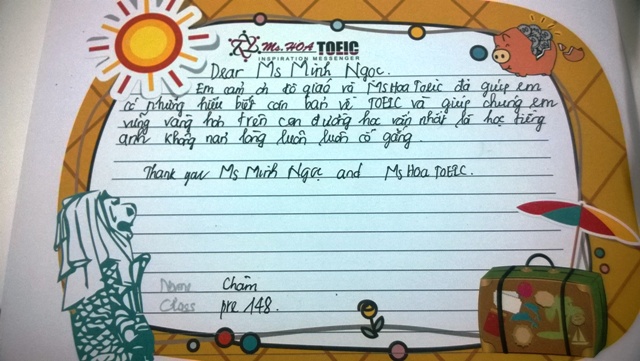 Ms. HOA TOEIC
INSPIRATION MESSENGER
Dear Ms Minh Ngọc.
Em cảm ơn cô giáo và Ms Hoa Toeic đã giúp em
có những hiểu biết căn bản về TOEIC và giúp chúng em
vững vàng hơn trên con đường học vấn nhất là học tiếng
anh không nản lòng luôn luôn cố gắng.
Thank you Ms Minh Ngọc and Ms Hoa TOEIC.
Name Châm
Class pre 148.